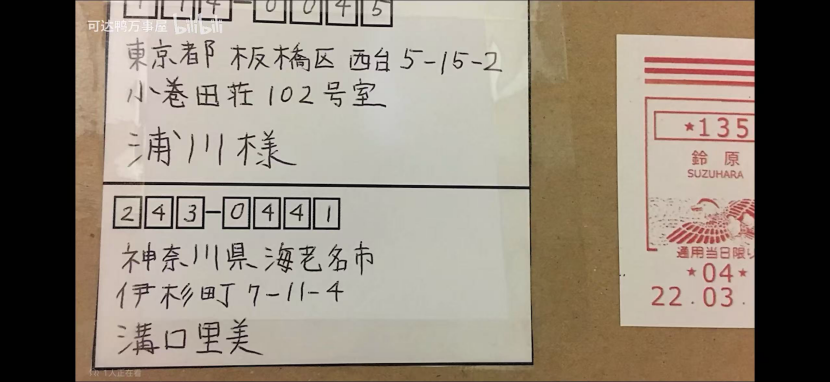 可达鸭万事屋 bilibili
114-0045
東京都 板橋区 西台 5-15-2
小巻田荘 102号室
浦川様
243-0441
神奈川県 海老名市
伊杉町 7-11-4
溝口里美
★135
鈴原
SUZUHARA
通用当日限り
★04★
22.03.
1人正在看